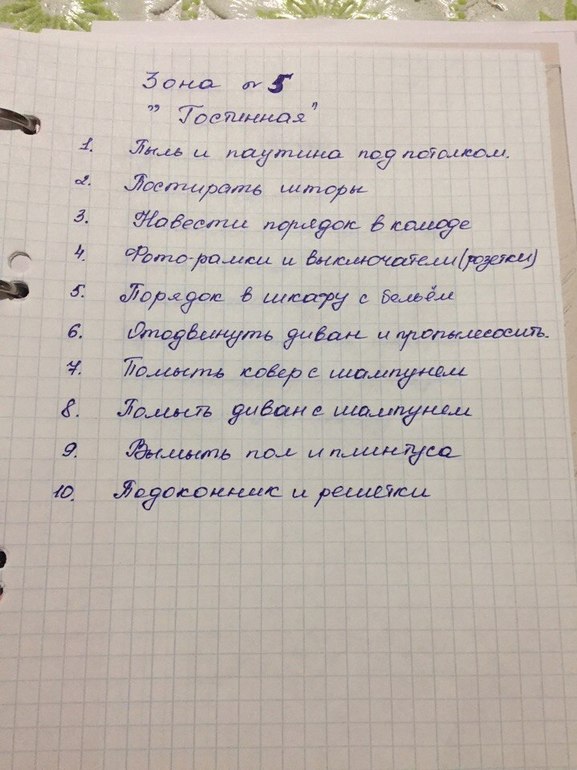 Зона № 5
"Гостинная"
1. Пыль и паутина под потолком.
2. Постирать шторы
3. Навести порядок в комоде
4. Фото-рамки и выключатели (розетки)
5. Порядок в шкафу с бельём
6. Отодвинуть диван и пропылесосить.
7. Помыть ковер с шампунем
8. Помыть диван с шампунем
9. Вымыть пол и плинтуса
10. Подоконник и решётки